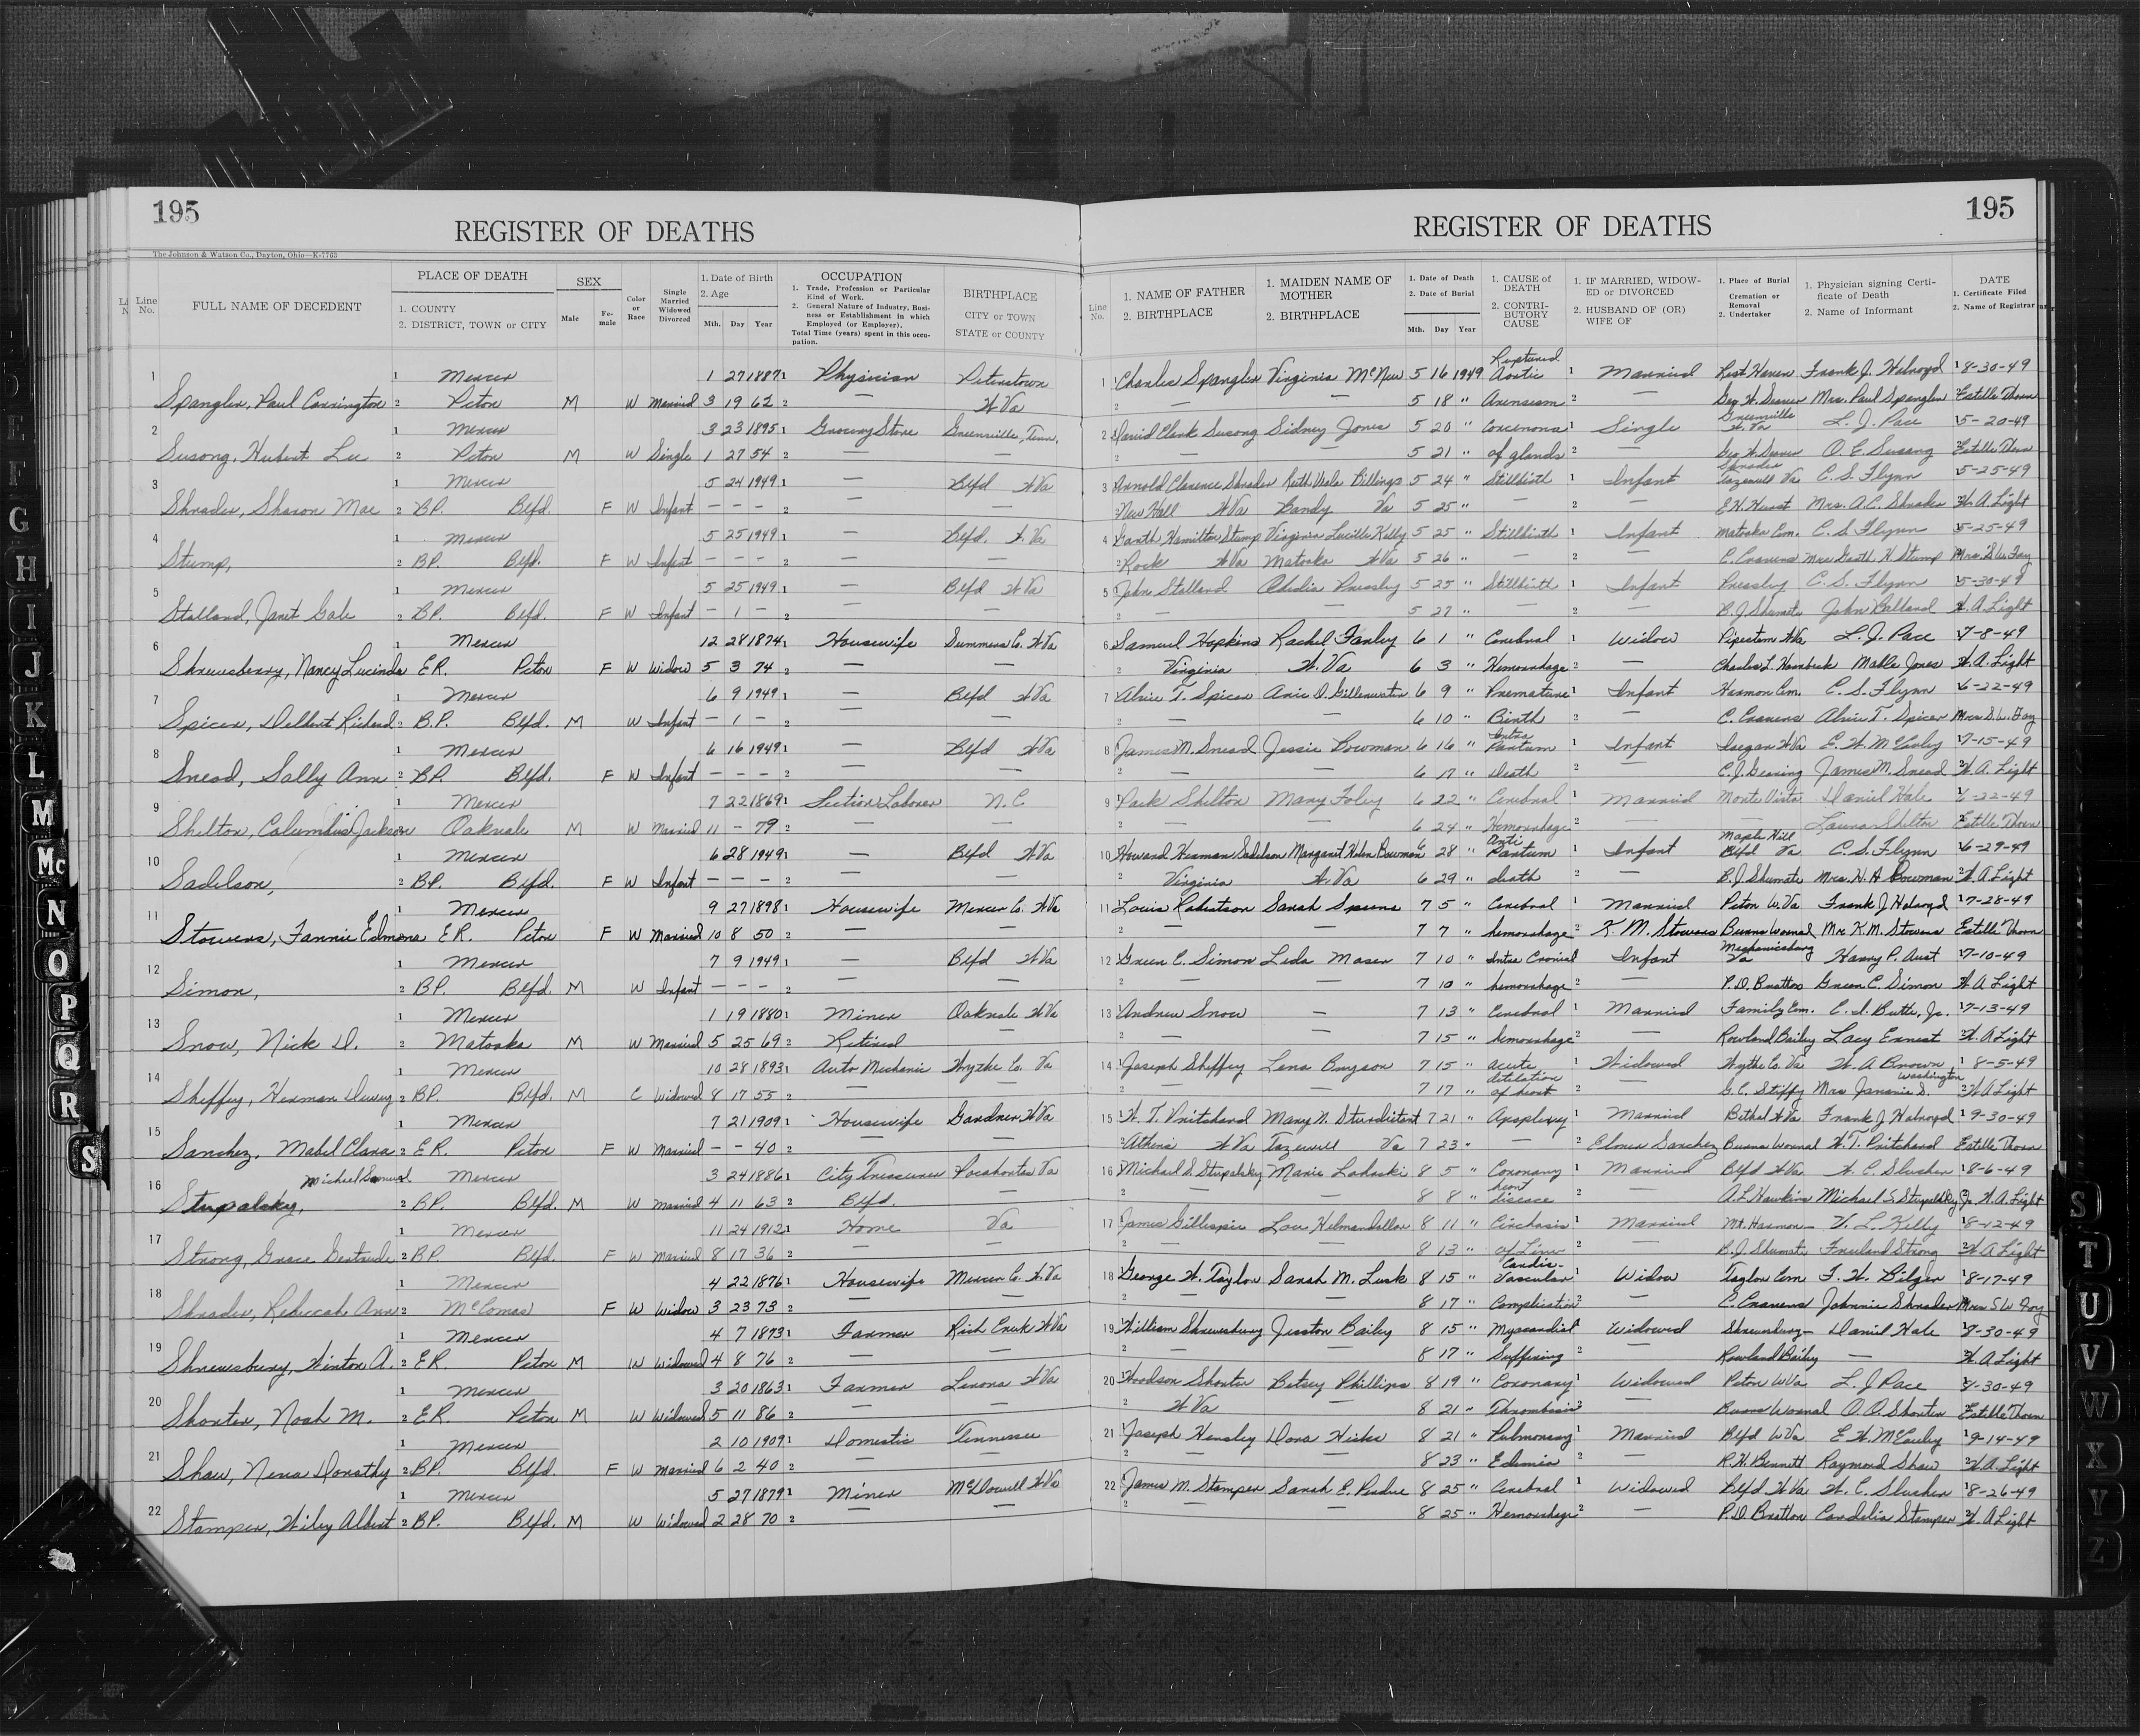 195
REGISTER OF DEATHS
The Johnson & Watson Co., Dayton, Ohio—K-7763
Line No. FULL NAME OF DECEDENT PLACE OF DEATH 1. COUNTY 2. DISTRICT, TOWN or CITY SEX Male Female Color or Race Single Married Widowed Divorced 1. Date of Birth 2. Age Mth. Day Year OCCUPATION 1. Trade, Profession or Particular Kind of Work. 2. General Nature of Industry, Business or Establishment in which Employed (or Employer). Total Time (years) spent in this occupation. BIRTHPLACE CITY or TOWN STATE or COUNTY
1 1 Mercer 1 27 1887 1 Physician Peterstown
Spangler, Paul Carrington 2 Peton M W Married 3 19 62 2 — W Va
2 1 Mercer 3 23 1895 1 Grocery Store Greenville, Tenn.
Susong, Hubert Lee 2 Peton M W Single 1 27 54 2 —
3 1 Mercer 5 24 1949 1 — Blfd W Va
Shrader, Sharon Mae 2 BP. Blfd. F W Infant — — — 2 —
4 1 Mercer 5 25 1949 1 — Blfd. W Va
Stump, 2 BP. Blfd. F W Infant — — — 2 — —
5 1 Mercer 5 25 1949 1 — Blfd W Va
Stalland, Janet Gale 2 BP. Blfd. F W Infant — 1 — 2 —
6 1 Mercer 12 28 1874 1 Housewife Summers Co. W Va
Shrewsberry, Nancy Lucinda ER. Peton F W Widow 5 3 74 2 — —
7 1 Mercer 6 9 1949 1 — Blfd W Va
Spicer, Delbert Richard 2 B.P. Blfd. M W Infant — 1 — 2 — —
8 1 Mercer 6 16 1949 1 — Blfd W Va
Snead, Sally Ann 2 BP. Blfd. F W Infant — — — 2 — —
9 1 Mercer 7 22 1869 1 Section Laborer N.C
Shelton, Columbus Jackson Oakvale M W Married 11 — 79 2 — —
10 1 Mercer 6 28 1949 1 — Blfd W Va
Sadelson, 2 BP. Blfd. F W Infant — — — 2 — —
11 1 Mercer 9 27 1898 1 Housewife Mercer Co. W Va
Stowers, Fannie Edmona ER. Peton F W Married 10 8 50 2 — —
12 1 Mercer 7 9 1949 1 — Blfd W Va
Simon, 2 BP. Blfd. M W Infant — — — 2 — —
13 1 Mercer 1 19 1880 1 Miner Oakvale W Va
Snow, Nick D. 2 Matoaka M W Married 5 25 69 2 Retired
14 1 Mercer 10 28 1893 1 Auto Mechanic Wythe Co. Va
Sheffey, Herman Dewey 2 BP. Blfd. M C Widowed 8 17 55 2 — —
15 1 Mercer 7 21 1909 1 Housewife Gardner W Va
Sanchez, Mabel Clara 2 ER. Peton F W Married — — 40 2 — —
16 Michael Samuel Mercer 3 24 1886 1 City Treasurer Pocahontas Va
Stupalsky, 2 BP. Blfd. M W Married 4 11 63 2 Blfd. —
17 1 Mercer 11 24 1912 1 Home Va
Strong, Grace Gertrude 2 BP. Blfd. F W Married 8 17 36 2 — —
18 1 Mercer 4 22 1876 1 Housewife Mercer Co. W Va
Shrader, Rebeccah Ann 2 McComas F W Widow 3 23 73 2 — —
19 1 Mercer 4 7 1873 1 Farmer Rich Creek W Va
Shrewsbury, Winton A. 2 ER. Peton M W Widowed 4 8 76 2 — —
20 1 Mercer 3 20 1863 1 Farmer Lerona W Va
Shorter, Noah M. 2 ER. Peton M W Widowed 5 11 86 2 — —
21 1 Mercer 2 10 1909 1 Domestic Tennessee
Shaw, Nena Dorothy 2 BP. Blfd. F W Married 6 2 40 2 — —
22 1 Mercer 5 27 1879 1 Miner McDowell W Va
Stamper, Wiley Albert 2 BP. Blfd. M W Widowed 2 28 70 2 — —
195
REGISTER OF DEATHS
Line No. 1. NAME OF FATHER 2. BIRTHPLACE 1. MAIDEN NAME OF MOTHER 2. BIRTHPLACE 1. Date of Death 2. Date of Burial Mth. Day Year 1. CAUSE of DEATH 2. CONTRIBUTORY CAUSE 1. IF MARRIED, WIDOWED or DIVORCED 2. HUSBAND OF (OR) WIFE OF 1. Place of Burial Cremation or Removal 2. Undertaker 1. Physician signing Certificate of Death 2. Name of Informant DATE 1. Certificate Filed 2. Name of Registrar
1 Charles Spangler Virginia McNew 5 16 1949 Ruptured Aortic 1 Married Rest Haven Frank J. Holroyd 8-30-49
2 — — 5 18 " Aneurism 2 — Geo W. Seaver Mrs. Paul Spangler Estelle Thorn
2 David Clark Susong Sidney Jones 5 20 " Corcinona 1 Single Greenville W. Va L. J. Pace 5-20-49
2 — — 5 21 " of glands 2 — Geo W. Seaver O. E. Susong Estelle Thorn
3 Arnold Clarence Shrader Ruth Veale Billings 5 24 " Stillbirth 1 Infant Shrader Tazewell Va C. S. Flynn 5-25-49
2 New Hall W Va Bandy Va 5 25 " — 2 — E. H. Hurst Mrs. A. C. Shrader W. A. Light
4 Garth Hamilton Stump Virginia Lucille Kelly 5 25 " Stillbirth 1 Infant Matoaka Cem. C. S. Flynn 5-25-49
2 Rock W Va Matoaka W Va 5 26 " — 2 — C. Cravens Mrs Garth H. Stump Mrs. S. W. Fay
5 John Stalland Pressley 5 25 " Stillbirth 1 Infant Pressley C. S. Flynn 5-30-49
2 — — 5 27 " — 2 — B. J. Shumate John Balland W. A. Light
6 Samuel Hopkins Rachel Farley 6 1 " Cerebral 1 Widow Pipestem W Va L. J. Pace 7-8-49
2 Virginia W. Va 6 3 " Hemorrhage 2 — Charles L. Hambrick Mable Jones W. A. Light
7 Alvie T. Spicer Avie D. Gillenwater 6 9 " Premature 1 Infant Harmon Cem. C. S. Flynn 6-22-49
2 — — 6 10 " Birth 2 — C. Cravens Alvie T. Spicer Mrs S. W. Fay
8 James M. Snead Jessie Bowman 6 16 " Intra Partum 1 Infant Iaegar W Va E. H. McCauley 7-15-49
2 — — 6 17 " Death 2 — C. J. Gearing James M. Snead W. A. Light
9 Park Shelton Mary Foley 6 22 " Cerebral 1 Married Monte Vista Daniel Hale 6-22-49
2 — — 6 24 " Hemorrhage 2 — — Laura Shelton Estelle Thorn
10 Howard Herman Sadelson Margaret Helen Bowman 6 28 " Anti Partum 1 Infant Maple Hill Blfd Va C. S. Flynn 6-29-49
2 Virginia W. Va 6 29 " death 2 — B. J. Shumate Mrs. H. A Bowman W. A Light
11 Louis Robertson Sarah Spiene 7 5 " Cerebral 1 Married Peton W. Va Frank J Holroyd 7-28-49
2 — — 7 7 " hemorrhage 2 K. M. Stowers Burns Wornal Mr K. M. Stowers Estelle Thorn
12 Green C. Simon Leda Maser 7 10 " Intra Cranial Infant Mechanicsburg Va Harry P. Aust 7-10-49
2 — — 7 10 " hemorrhage 2 — P. D. Bratton Green C. Simon W A Light
13 Andrew Snow — 7 13 " Cerebral 1 Married Family Cem. E. S. Butts, Jr. 7-13-49
— — 7 15 " hemorrhage 2 — Rowland Bailey Lacy Earnest W. A Light
14 Joseph Sheffey Lena Bryson 7 15 " acute 1 Widowed Wythe Co. Va W. A Brown 8-5-49
2 — — 7 17 " dilation of heart 2 — G. C. Stiffy Mrs Jannie S. Washington W A Light
15 W. T. Pritchard Mary N. Sturdivant 7 21 " Apoplexy 1 Married Bethel W Va Frank J Holroyd 9-30-49
2 Athens W Va Tazewell Va 7 23 " — 2 Elmer Sanchez Burns Wornal W. T. Pritchard Estelle Thorn
16 Michael S. Stupalsky Marie Lahaski 8 5 " Coronary 1 Married Blfd W Va W. C. Slusher 8-6-49
2 — — 8 8 " heart disease 2 — A L Hawkins Michael S Stupalsky Jr. W. A. Light
17 James Gillespie Lou Helman Dollar 8 11 " Cirrhosis 1 Married Mt. Harmon V. L. Kelly 8-12-49
8 13 " of Liver 2 — B. J. Shumate Freeland Strong W. A Light
18 George W. Taylor Sarah M. Lusk 8 15 " Cardio-Vascular 1 Widow Taylor Cem F. W. Bilger 8-17-49
2 — — 8 17 " Complication 2 — C. Cravens Johnnie Shrader Mrs S W Fay
19 William Shrewsbury Jesston Bailey 8 15 " Myocardial Widowed Shrewsbury Daniel Hale 8-30-49
2 — — 8 17 " Suffixing 2 — Rowland Bailey — W. A Light
20 Woodson Shorter Betsey Phillips 8 19 " Coronary 1 Widowed Peton W Va L. J Pace 8-30-49
2 W Va — 8 21 " Thrombosis 2 — Burns Wornal O. O. Shorter Estelle Thorn
21 Joseph Hensley Dora Hicks 8 21 " Pulmonary 1 Married Blfd W Va E. H. McCauley 9-14-49
2 — — 8 23 " Edemia 2 — R. H. Bennett Raymond Shaw W. A. Light
22 James M. Stamper Sarah E. Perdue 8 25 " Cerebral 1 Widowed Blfd W Va W. C. Slusher 8-26-49
2 — — 8 25 " Hemorrhage 2 — P. D. Bratton Cordelia Stamper W. A Light
E
F
G
H
I
J
K
L
M
Mc
N
O
P
Q
R
S
S
T
U
V
W
X
Y
Z